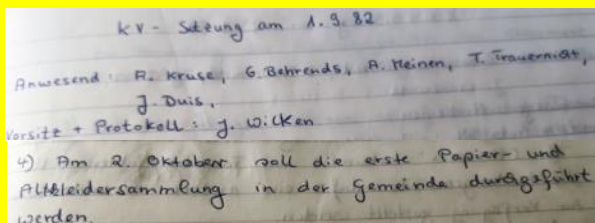 KV - Sitzung am 1.9.82
Anwesend: A. Kruse, G. Behrends, A. Meinen, T. Trauernicht,
J. Duis,
Vorsitz + Protokoll: J. Wilken
4) Am 2. Oktober soll die erste Papier- und
Altkleidersammlung in der Gemeinde durchgeführt
werden.